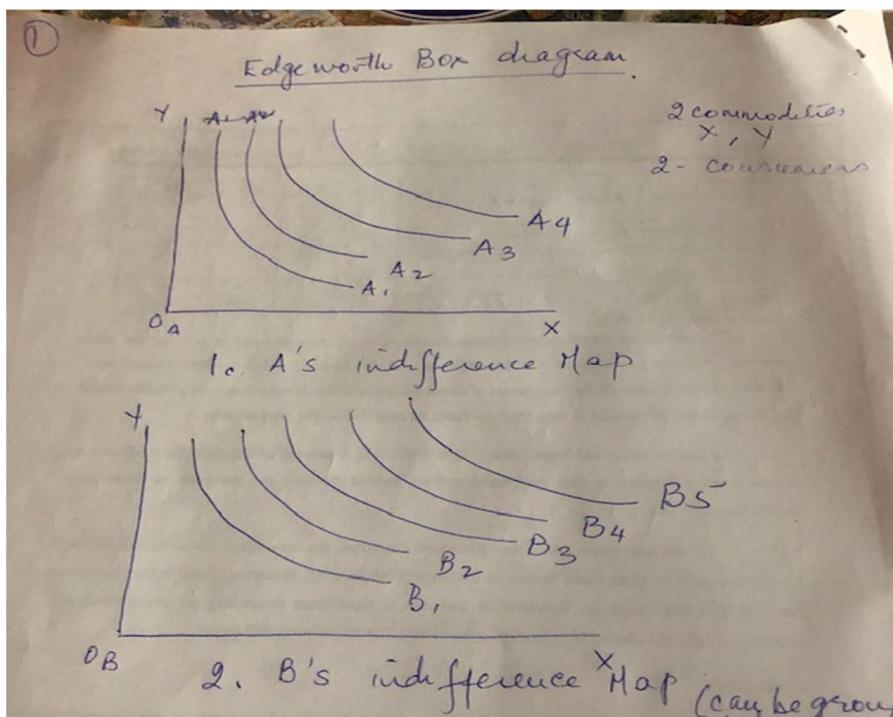 1
Edgeworth Box diagram.
2 commodities
X, Y
2 - consumers
Y A1 A2
A4
A3
A2
A1
OA X
1. A's indifference Map
Y
B5
B4
B3
B2
B1
OB X
2. B's indifference Map (can be